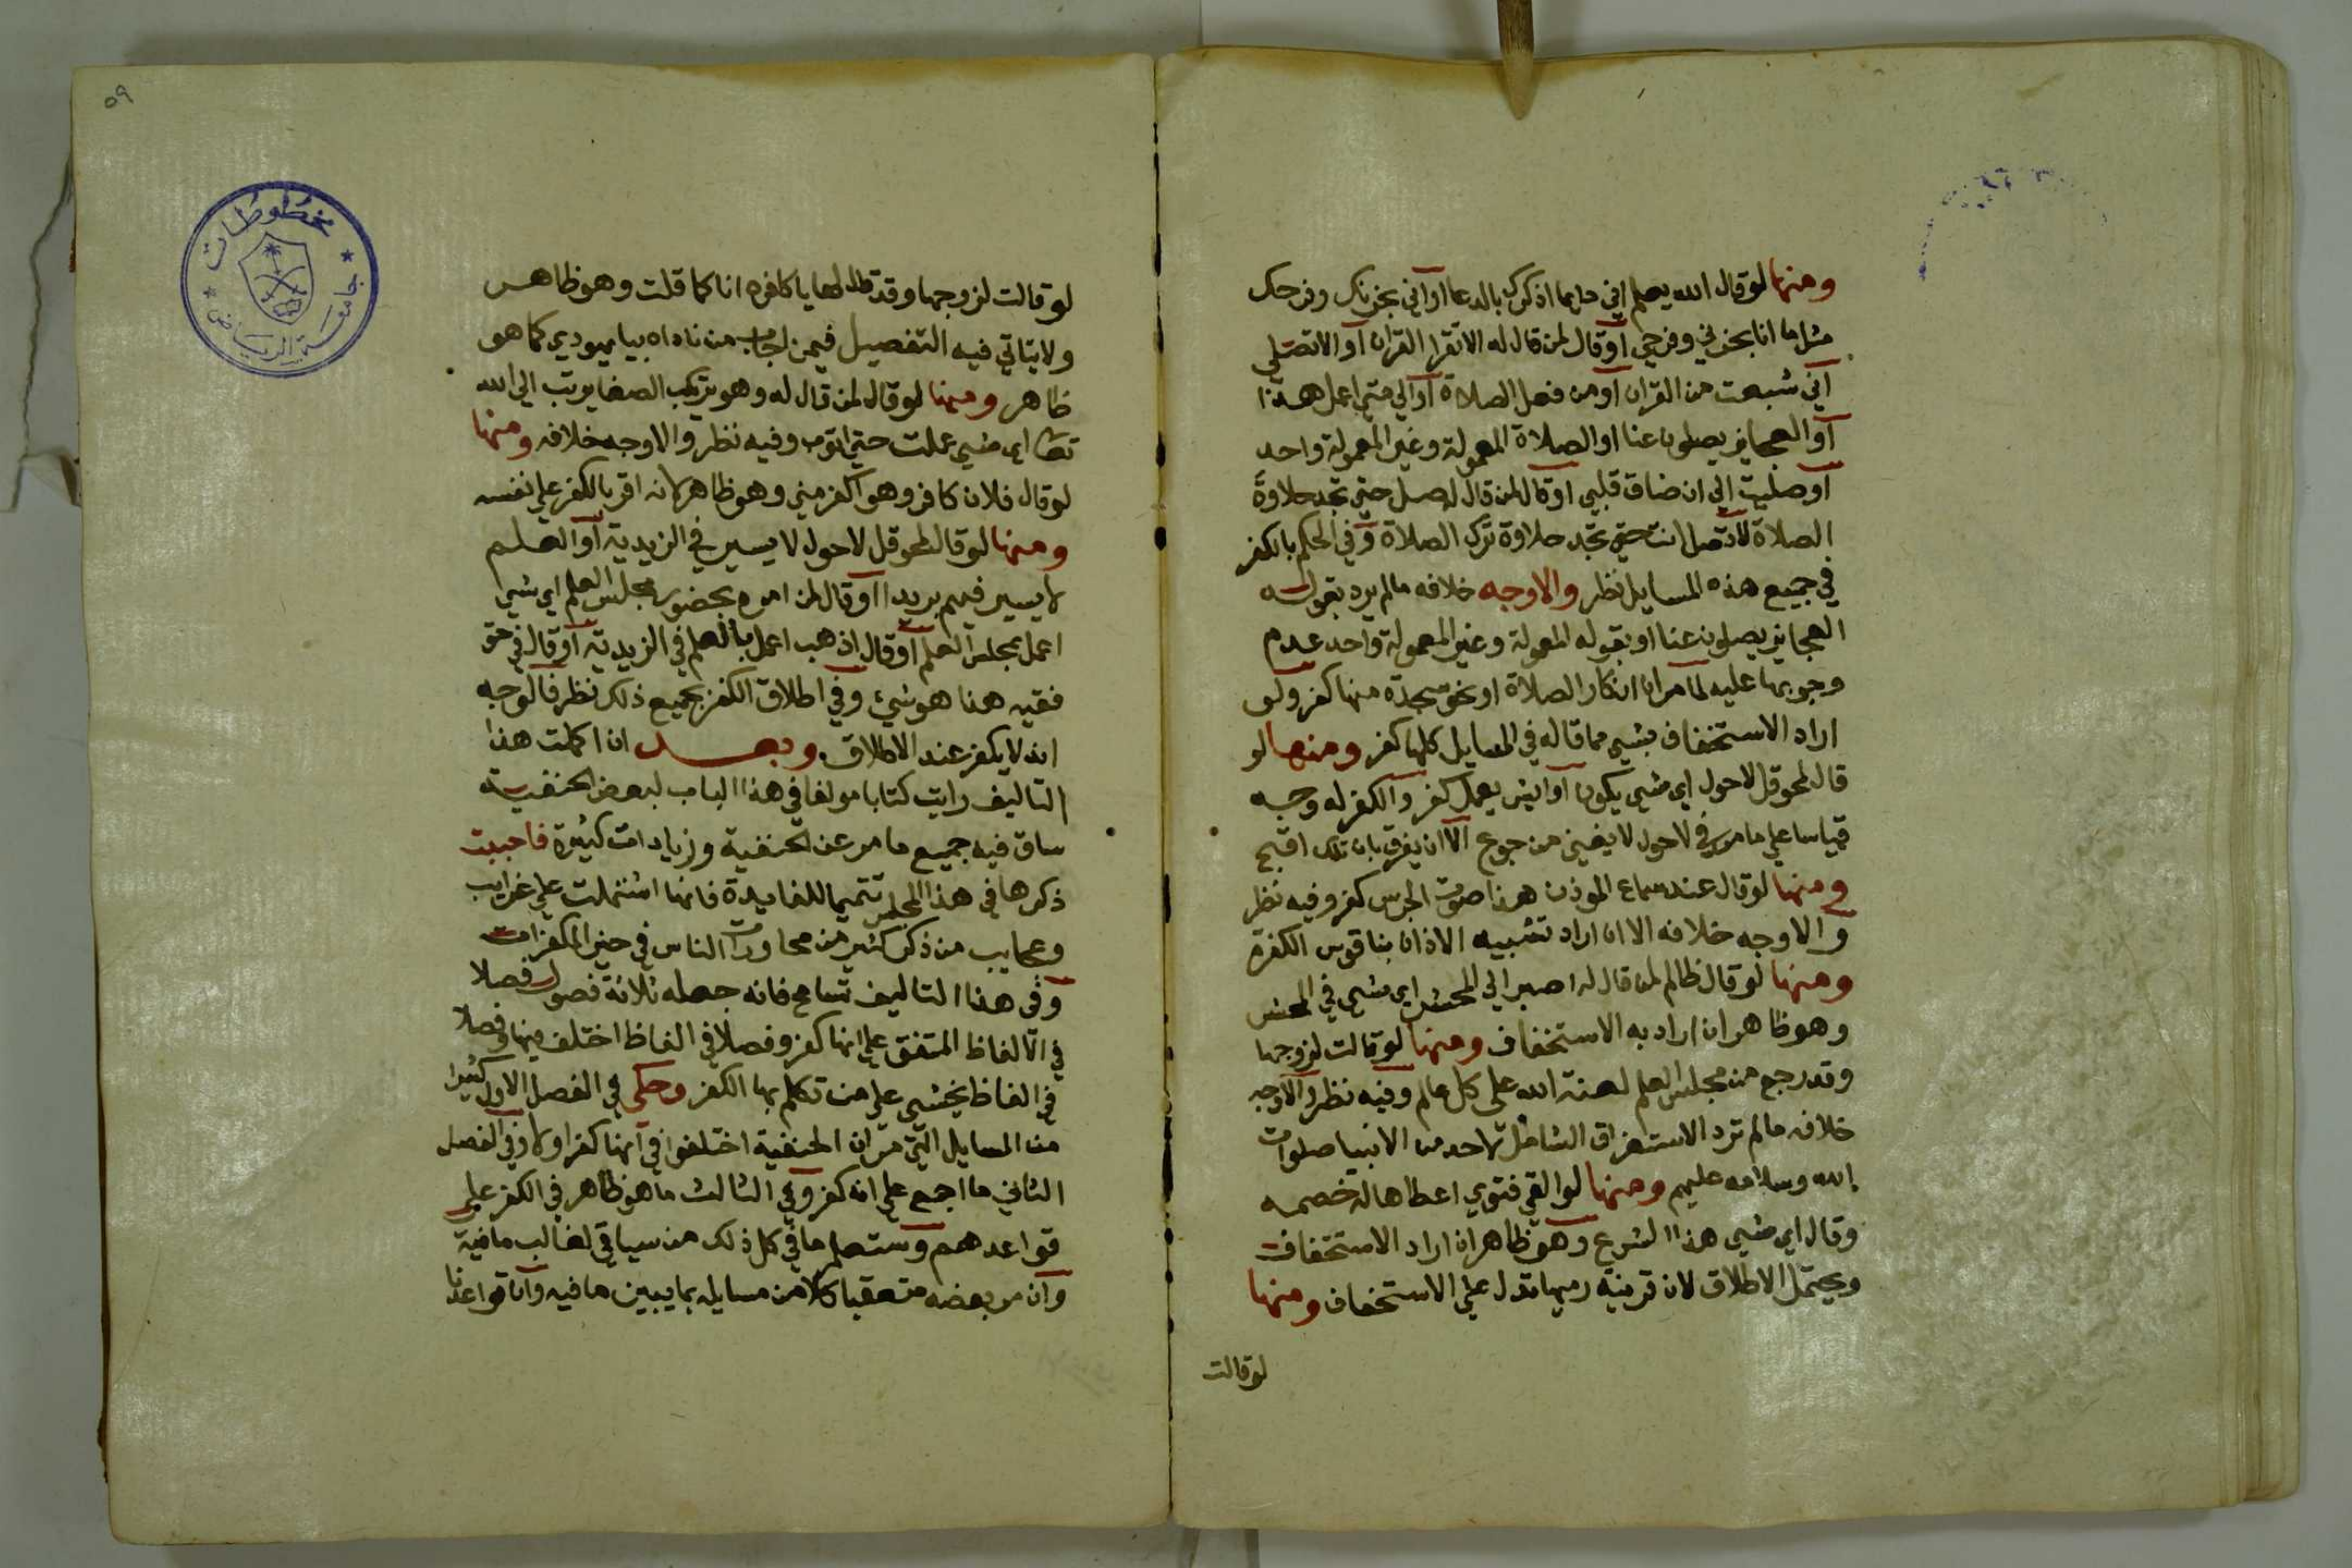 ومنها لو قال الله يعلم اني دايما اذكرك بالدعا او اني بحزنك وفرحك
مثل ما انا بحزني وفرحي او قال لمن قال له الا تقرا القران او الا تصلي
اني شبعت من القران او من فعل الصلاة او الي متي اعمل هذا
او العجايز يصلون عنا او الصلاة المعمولة وغير المعمولة واحد
او صليت الي ان ضاق قلبي او قال لمن قال له صل حتي تجد حلاوة
الصلاة لا تصل انت حتي تجد حلاوة ترك الصلاة وفي الحكم بالكفر
في جميع هذه المسايل نظر والاوجه خلافه ما لم يرد بقوله
العجايز يصلون عنا او بقوله المعمولة وغير المعمولة واحد عدم
وجوبها عليه لما مر ان انكار الصلاة او نحو سجدة منها كفر ولو
اراد الاستخفاف بشي مما قاله في المسايل كلها كفر ومنها لو
قال لمحوقل لاحول اي شي يكون او ايش يعمل كفر والكفر له وجه
قياسا علي ما مر في لاحول لا يغني من جوع الا ان يفرق بان تلك اقبح
ومنها لو قال عند سماع الموذن هذا صوت الجرس كفر وفيه نظر
والاوجه خلافه الا ان اراد تشبيه الاذان بناقوس الكفرة
ومنها لو قال ظالم لمن قال له اصبر الي المحشر اي شي في المحشر
وهو ظاهر ان اراد به الاستخفاف ومنها لو قالت لزوجها
وقد رجع من مجلس العلم لعنة الله علي كل عالم وفيه نظر والاوجه
خلافه ما لم ترد الاستغراق الشامل لاحد من الانبيا صلوات
الله وسلامه عليهم ومنها لو القي فتوي اعطاها له خصمه
وقال اي شي هذا الشرع وهو ظاهر ان اراد الاستخفاف
ويحتمل الاطلاق لان قرينة رميها تدل علي الاستخفاف ومنها
لو قالت
٥٩
مخطوطات
جامعة الرياض
لو قالت لزوجها وقد قال لها يا كافره انا كما قلت وهو ظاهر
ولا يتاتي فيه التفصيل فيمن اجاب من ناداه بيا يهودي كما هو
ظاهر ومنها لو قال لمن قال له وهو يرتكب الصغاير تب الي الله
تعا اي شي عملت حتي اتوب وفيه نظر والاوجه خلافه ومنها
لو قال فلان كافر وهو اكفر مني وهو ظاهر لانه اقر بالكفر علي نفسه
ومنها لو قال لمحوقل لاحول لا يسير في الزبدية او العلم
لا يسير فيهم بريدا او قال لمن امره بحضور مجلس العلم اي شي
اعمل بمجلس العلم او قال اذهب اعمل بالعلم في الزبدية او قال في حق
فقيه هذا هو شيء وفي اطلاق الكفر بجميع ذلك نظر فالوجه
انه لا يكفر عند الاطلاق وبعد ان اكملت هذا
التاليف رايت كتابا مولفا في هذا الباب لبعض الحنفية
ساق فيه جميع ما مر عن الحنفية وزيادات كثيرة فاحببت
ذكرها في هذا المجلس تتميما للفايدة فانها اشتملت علي غرايب
وعجايب من ذكر كثير من محاورات الناس في حيز المكفرات
وفي هذا التاليف تسامح فانه جعله ثلاثة فصول فصلا
في الالفاظ المتفق علي انها كفر وفصلا في الفاظ اختلف فيها وفصلا
في الفاظ يخشي علي من تكلم بها الكفر وحكي في الفصل الاول كثيرا
من المسايل التي مر ان الحنفية اختلفوا في انها كفر او لا وفي الفصل
الثاني ما اجمع علي انه كفر وفي الثالث ما هو ظاهر في الكفر علي
قواعدهم وستعلم ما في كل ذلك من سياقي لغالب ما فيه
وان مر بعضه متعقبا كلا من مسايله بما يبين ما فيه وان قواعدنا